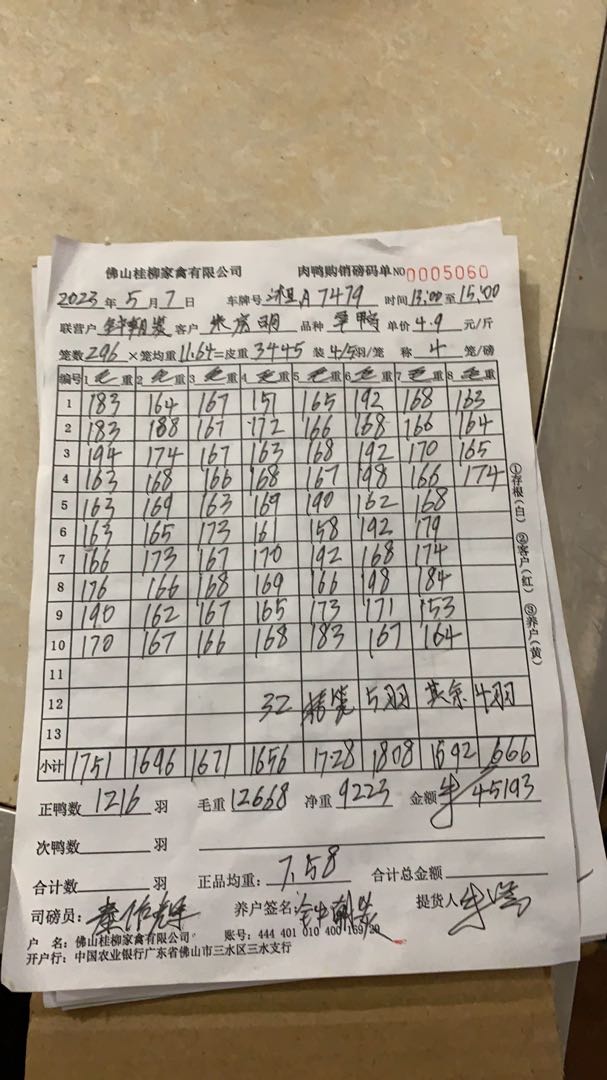 佛山桂柳家禽有限公司 肉鸭购销磅码单 NO 0005060
2023 年 5 月 7 日 车牌号 A7479 时间 13:00 至 15:00
联营户 客户 品种 单价 4.9 元/斤
笼数 296 ×笼均重 11.64 =皮重 3445 装 4/5 羽/笼 称 4 笼/磅
编号 1 毛重 2 毛重 3 毛重 4 毛重 5 毛重 6 毛重 7 毛重 8 毛重
1 183 164 167 151 165 192 168 163
2 183 188 167 172 166 168 166 164
3 194 174 167 163 168 192 170 165
4 163 168 166 168 167 198 166 174
5 163 169 163 169 190 162 168
6 163 165 173 161 158 192 179
7 166 173 167 170 192 168 174
8 176 166 168 169 166 198 184
9 190 162 167 165 173 171 153
10 170 167 166 168 183 167 164
11
12 32 5羽 其余 4羽
13
小计 1751 1696 1671 1656 1728 1808 1692 666
正鸭数 1216 羽 毛重 12668 净重 9223 金额 45193
次鸭数 羽
合计数 羽 正品均重: 7.58 合计总金额
司磅员: 养户签名: 提货人
户 名: 佛山桂柳家禽有限公司 账号: 444 401 010 400 169 20
开户行: 中国农业银行广东省佛山市三水区三水支行
①存根(白) ②客户(红) ③养户(黄)